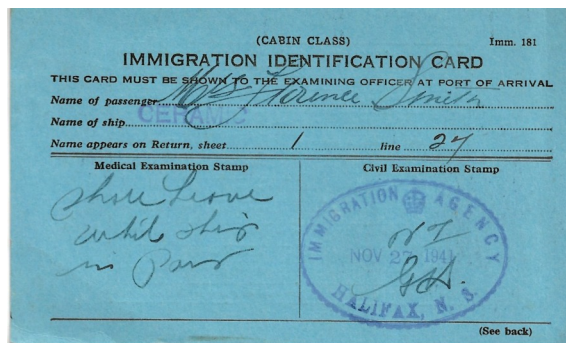 (CABIN CLASS) Imm. 181
IMMIGRATION IDENTIFICATION CARD
THIS CARD MUST BE SHOWN TO THE EXAMINING OFFICER AT PORT OF ARRIVAL
Name of passenger Florence Smith
Name of ship CERAMIC
Name appears on Return, sheet 1 line 27
Medical Examination Stamp
Shore Leave
while ship
in Port
Civil Examination Stamp
IMMIGRATION AGENCY
NOV 1941
HALIFAX, N. S.
(See back)